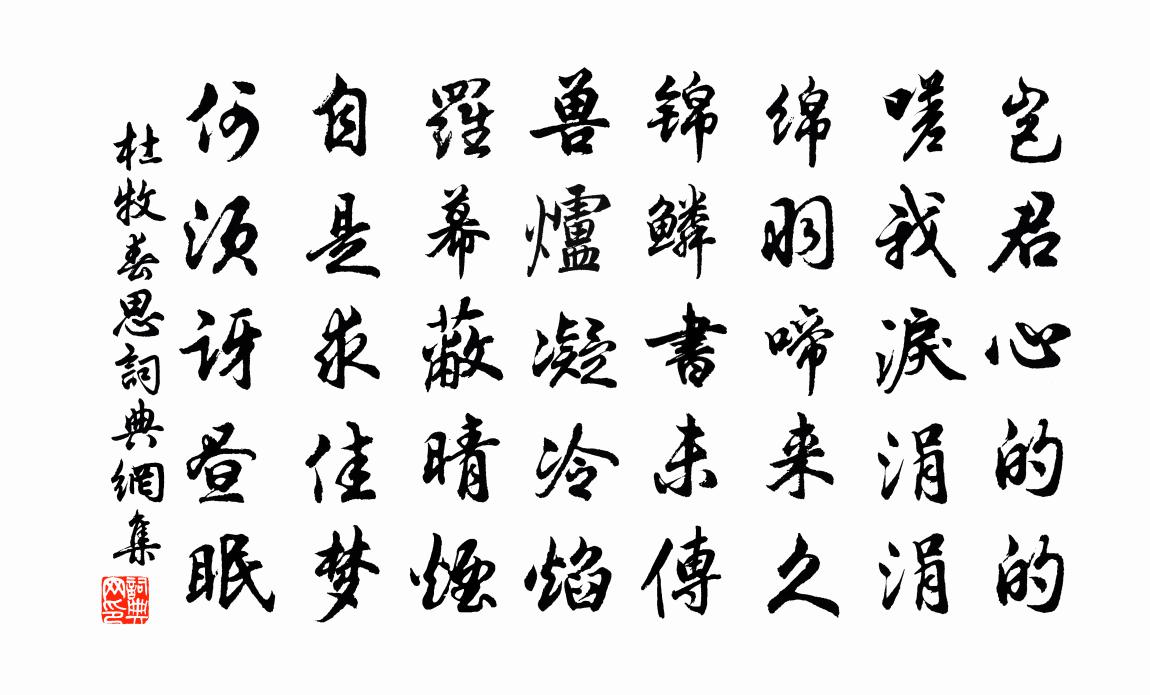 岂君心的的
嗟我淚涓涓
绵羽啼来久
锦鳞書未傳
兽爐凝冷焰
羅幕蔽晴煙
自是求佳梦
何须讶昼眠
杜牧春思詞典網集
詞典网印